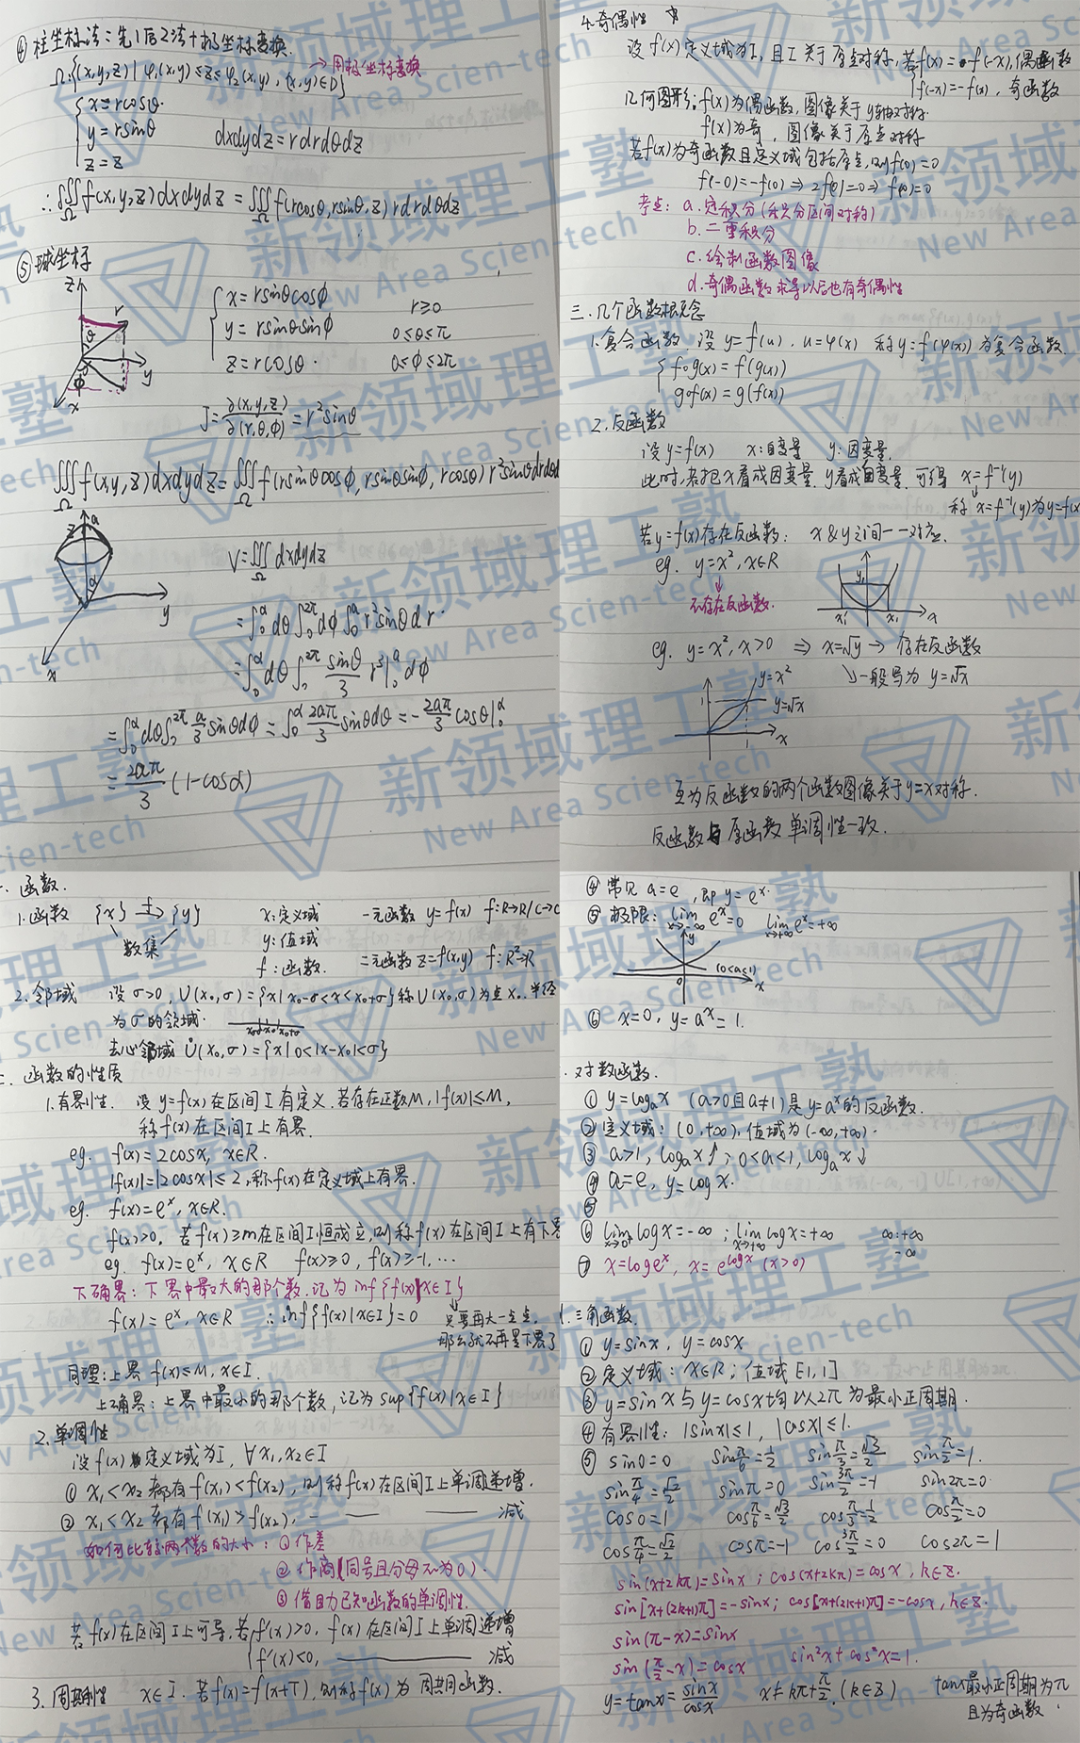 ④ 柱坐标法：先1后2法+极坐标变换.
Ω:{(x,y,z)|φ₁(x,y)≤z≤φ₂(x,y), (x,y)∈D} → 用极坐标变换
{x=rcosθ.
y=rsinθ dxdydz=rdrdθdz
z=z
∴∭_Ω f(x,y,z)dxdydz=∭_Ω f(rcosθ,rsinθ,z)rdrdθdz
⑤ 球坐标
z r θ y φ x
{x=rsinθcosφ r≥0
y=rsinθsinφ 0≤θ≤π
z=rcosθ. 0≤φ≤2π
J=∂(x,y,z)/∂(r,θ,φ)=r²sinθ
∭_Ω f(x,y,z)dxdydz=∭_Ω f(rsinθcosφ,rsinθsinφ,rcosθ)r²sinθdrdθd
z a α y x
V=∭_Ω dxdydz
=∫₀^α dθ∫₀^2π dφ∫₀^a r²sinθdr.
=∫₀^α dθ∫₀^2π sinθ/3 r³|₀^a dφ
=∫₀^α dθ∫₀^2π a/3 sinθdφ=∫₀^α 2aπ/3 sinθdθ=-2aπ/3 cosθ|₀^α
=2aπ/3 (1-cosα)
4.奇偶性
设f(x)定义域为I,且I关于原点对称,若f(x)=f(-x),偶函数
{f(-x)=-f(x),奇函数
几何图形：f(x)为偶函数,图像关于y轴对称.
f(x)为奇,图像关于原点对称
若f(x)为奇函数且定义域包括原点,则f(0)=0
f(-0)=-f(0)⇒2f(0)=0⇒f(0)=0
考点：a.定积分(积分区间对称)
b.二重积分
c.绘制函数图像
d.奇偶函数求导以后也有奇偶性
三.几个函数概念
1.复合函数 设y=f(u).u=φ(x) 称y=f(φ(x))为复合函数.
{f∘g(x)=f(g(x))
g∘f(x)=g(f(x))
2.反函数
设y=f(x) x:自变量 y:因变量.
此时,若把x看成因变量.y看成自变量.可得 x=f⁻¹(y)
称x=f⁻¹(y)为y=f(x
若y=f(x)存在反函数： x&y之间一一对应.
eg. y=x²,x∈R
不存在反函数.
y₁ x₁' x₁ x
eg. y=x²,x>0 ⇒ x=√y → 存在反函数
↘一般写为y=√x
y=x²
1 y=√x
1 x
互为反函数的两个函数图像关于y=x对称.
反函数与原函数单调性一致.
一.函数.
1.函数 {x} →f {y} x:定义域 一元函数 y=f(x) f:R→R/C→C
数集 y:值域
f:函数. 二元函数z=f(x,y) f:R²→R
2.邻域 设σ>0,U(x₀,σ)={x|x₀-σ<x<x₀+σ}称U(x₀,σ)为点x₀,半径
为σ的领域. x₀-σ x₀ x₀+σ
去心邻域 Ů(x₀,σ)={x|0<|x-x₀|<σ}
二.函数的性质
1.有界性. 设y=f(x)在区间I有定义.若存在正数M,|f(x)|≤M,
称f(x)在区间I上有界.
eg. f(x)=2cosx, x∈R.
|f(x)|=|2cosx|≤2,称f(x)在定义域上有界.
eg. f(x)=eˣ,x∈R.
f(x)>0, 若f(x)≥m在区间I恒成立,则称f(x)在区间I上有下界
eg. f(x)=eˣ, x∈R f(x)≥0, f(x)≥-1,…
下确界：下界中最大的那个数.记为inf{f(x)|x∈I}
f(x)=eˣ,x∈R ∴inf{f(x)|x∈I}=0 只要再大一点点,
那么就不再是下界了
同理：上界 f(x)≤M, x∈I.
上确界：上界中最小的那个数,记为sup{f(x)|x∈I}
2.单调性
设f(x)定义域为I, ∀x₁,x₂∈I
① x₁<x₂都有f(x₁)<f(x₂),则称f(x)在区间I上单调递增.
② x₁<x₂都有f(x₁)>f(x₂), — —— ——— 减
如何比较两个数的大小：①作差
②作商(同号且分母不为0).
③借助已知函数的单调性.
若f(x)在区间I上可导,若f'(x)>0, f(x)在区间I上单调递增
{f'(x)<0, ———————— 减
3.周期性 x∈I.若f(x)=f(x+T),则称f(x)为周期函数.
④ 常见a=e,即y=eˣ.
⑤ 极限： lim x→-∞ eˣ=0 lim x→+∞ eˣ=+∞
y (0<a<1) 0 x
⑥ x=0, y=aˣ=1.
.对数函数.
① y=logₐx (a>0且a≠1)是y=aˣ的反函数.
② 定义域：(0,+∞),值域为(-∞,+∞).
③ a>1, logₐx↑;0<a<1, logₐx↓
④ a=e, y=logx.
⑤
⑥ lim x→0⁺ logx=-∞ ; lim x→+∞ logx=+∞ ∞:+∞
-∞
⑦ x=logeˣ, x=e^logx (x>0)
.三角函数.
① y=sinx, y=cosx
② 定义域：x∈R;值域[-1,1]
③ y=sinx与y=cosx均以2π为最小正周期.
④ 有界性：|sinx|≤1, |cosx|≤1.
⑤ sin0=0 sinπ/6=1/2 sinπ/3=√3/2 sinπ/2=1.
sinπ/4=√2/2 sinπ=0 sin3π/2=-1 sin2π=0
cos0=1 cosπ/6=√3/2 cosπ/3=1/2 cosπ/2=0
cosπ/4=√2/2 cosπ=-1 cos3π/2=0 cos2π=1
sin(x+2kπ)=sinx;cos(x+2kπ)=cosx,k∈Z.
sin[x+(2k+1)π]=-sinx;cos[x+(2k+1)π]=-cosx,k∈Z.
sin(π-x)=sinx
sin(π/2-x)=cosx sin²x+cos²x=1.
y=tanx=sinx/cosx x≠kπ+π/2.(k∈Z) tanx最小正周期为π
且为奇函数.
新领域理工塾
New Area Scien-tech